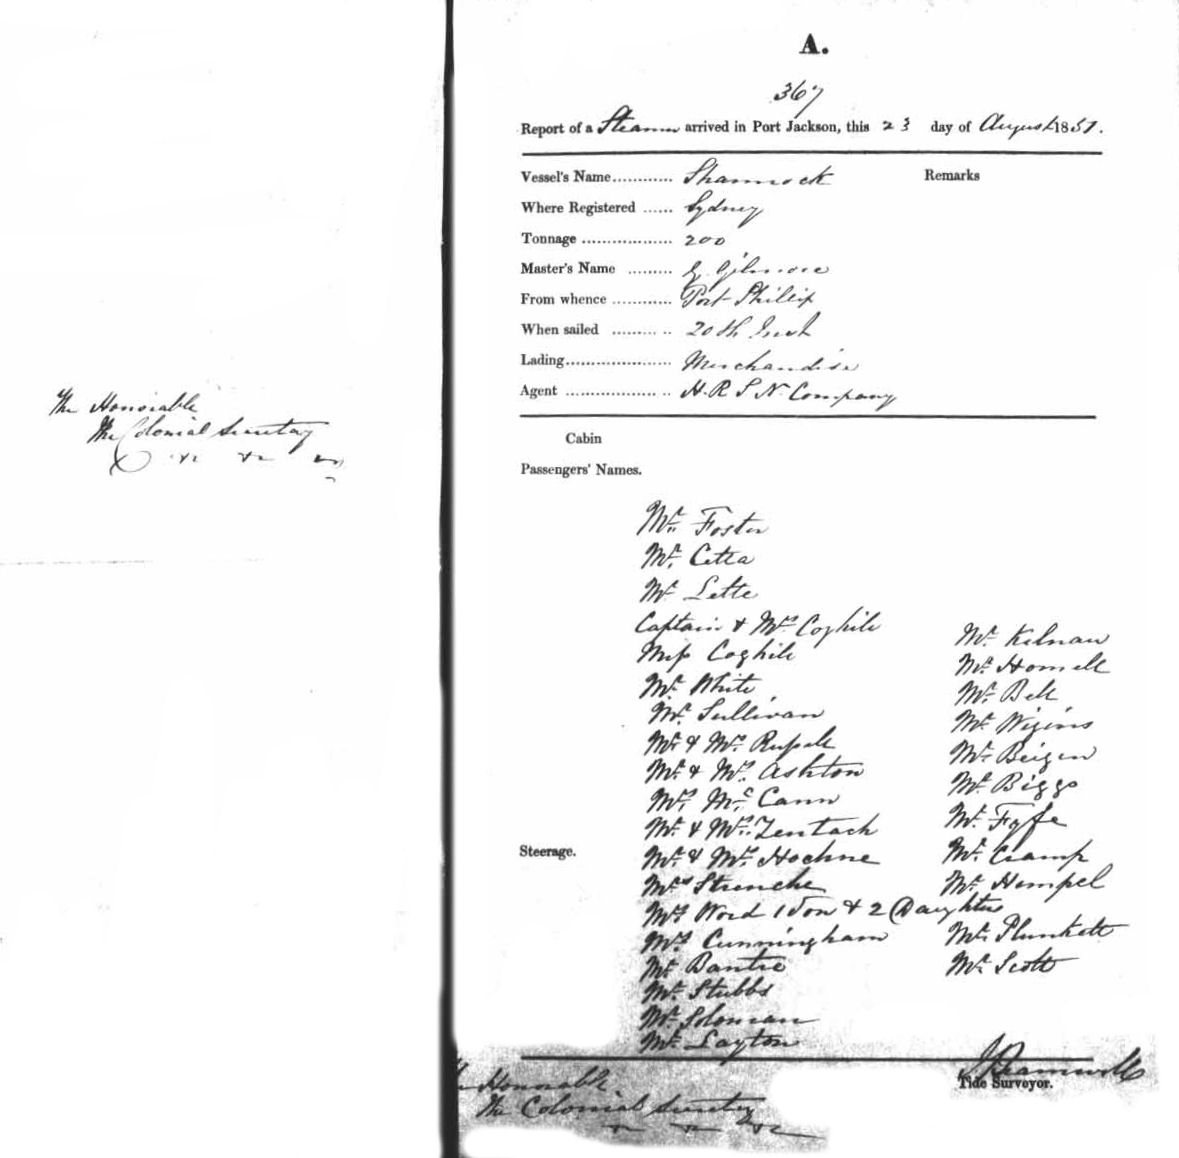 The Honorable
The Colonial Secretary
A.
367
Report of a Steamer arrived in Port Jackson, this 23 day of August 1851.
Vessel's Name............ Shamrock
Remarks
Where Registered ...... Sydney
Tonnage .................. 200
Master's Name ......... G. Gilmore
From whence ............ Port Phillip
When sailed ......... .. 20th Inst
Lading..................... Merchandise
Agent .................. .. H. R. S. N. Company
Cabin
Passengers' Names.
Mr. Foster
Mr. Cetta
Mr. Lette
Captain & Mrs. Coghill
Miss Coghill
Mr. White
Mr. Sullivan
Mr. & Mrs. Russell
Mr. & Mrs. Ashton
Mrs. Mc. Cann
Mr. & Mrs. Zentach
Steerage.
Mr. & Mrs. Hochne
Mrs. Strenche
Mrs. Word 1 Son & 2 Daughters
Mrs. Cunningham
Mr. Bantre
Mr. Stubbs
Mr. Soloman
Mr. Layton
Mr. Kilnan
Mr. Homell
Mr. Bell
Mr. Wigins
Mr. Beigen
Mr. Biggs
Mr. Fyfe
Mr. Cramp
Mr. Hempel
Mr. Plunkett
Mr. Scott
J. Bramwell
Tide Surveyor.
The Honorable
The Colonial Secretary